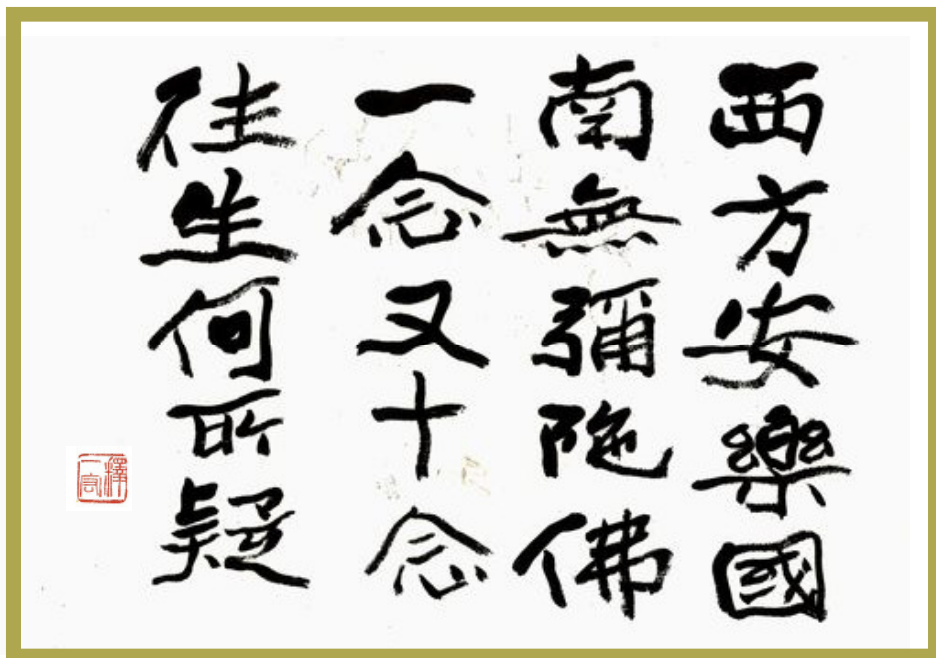 西方安樂國
南無彌陀佛
一念又十念
往生何所疑